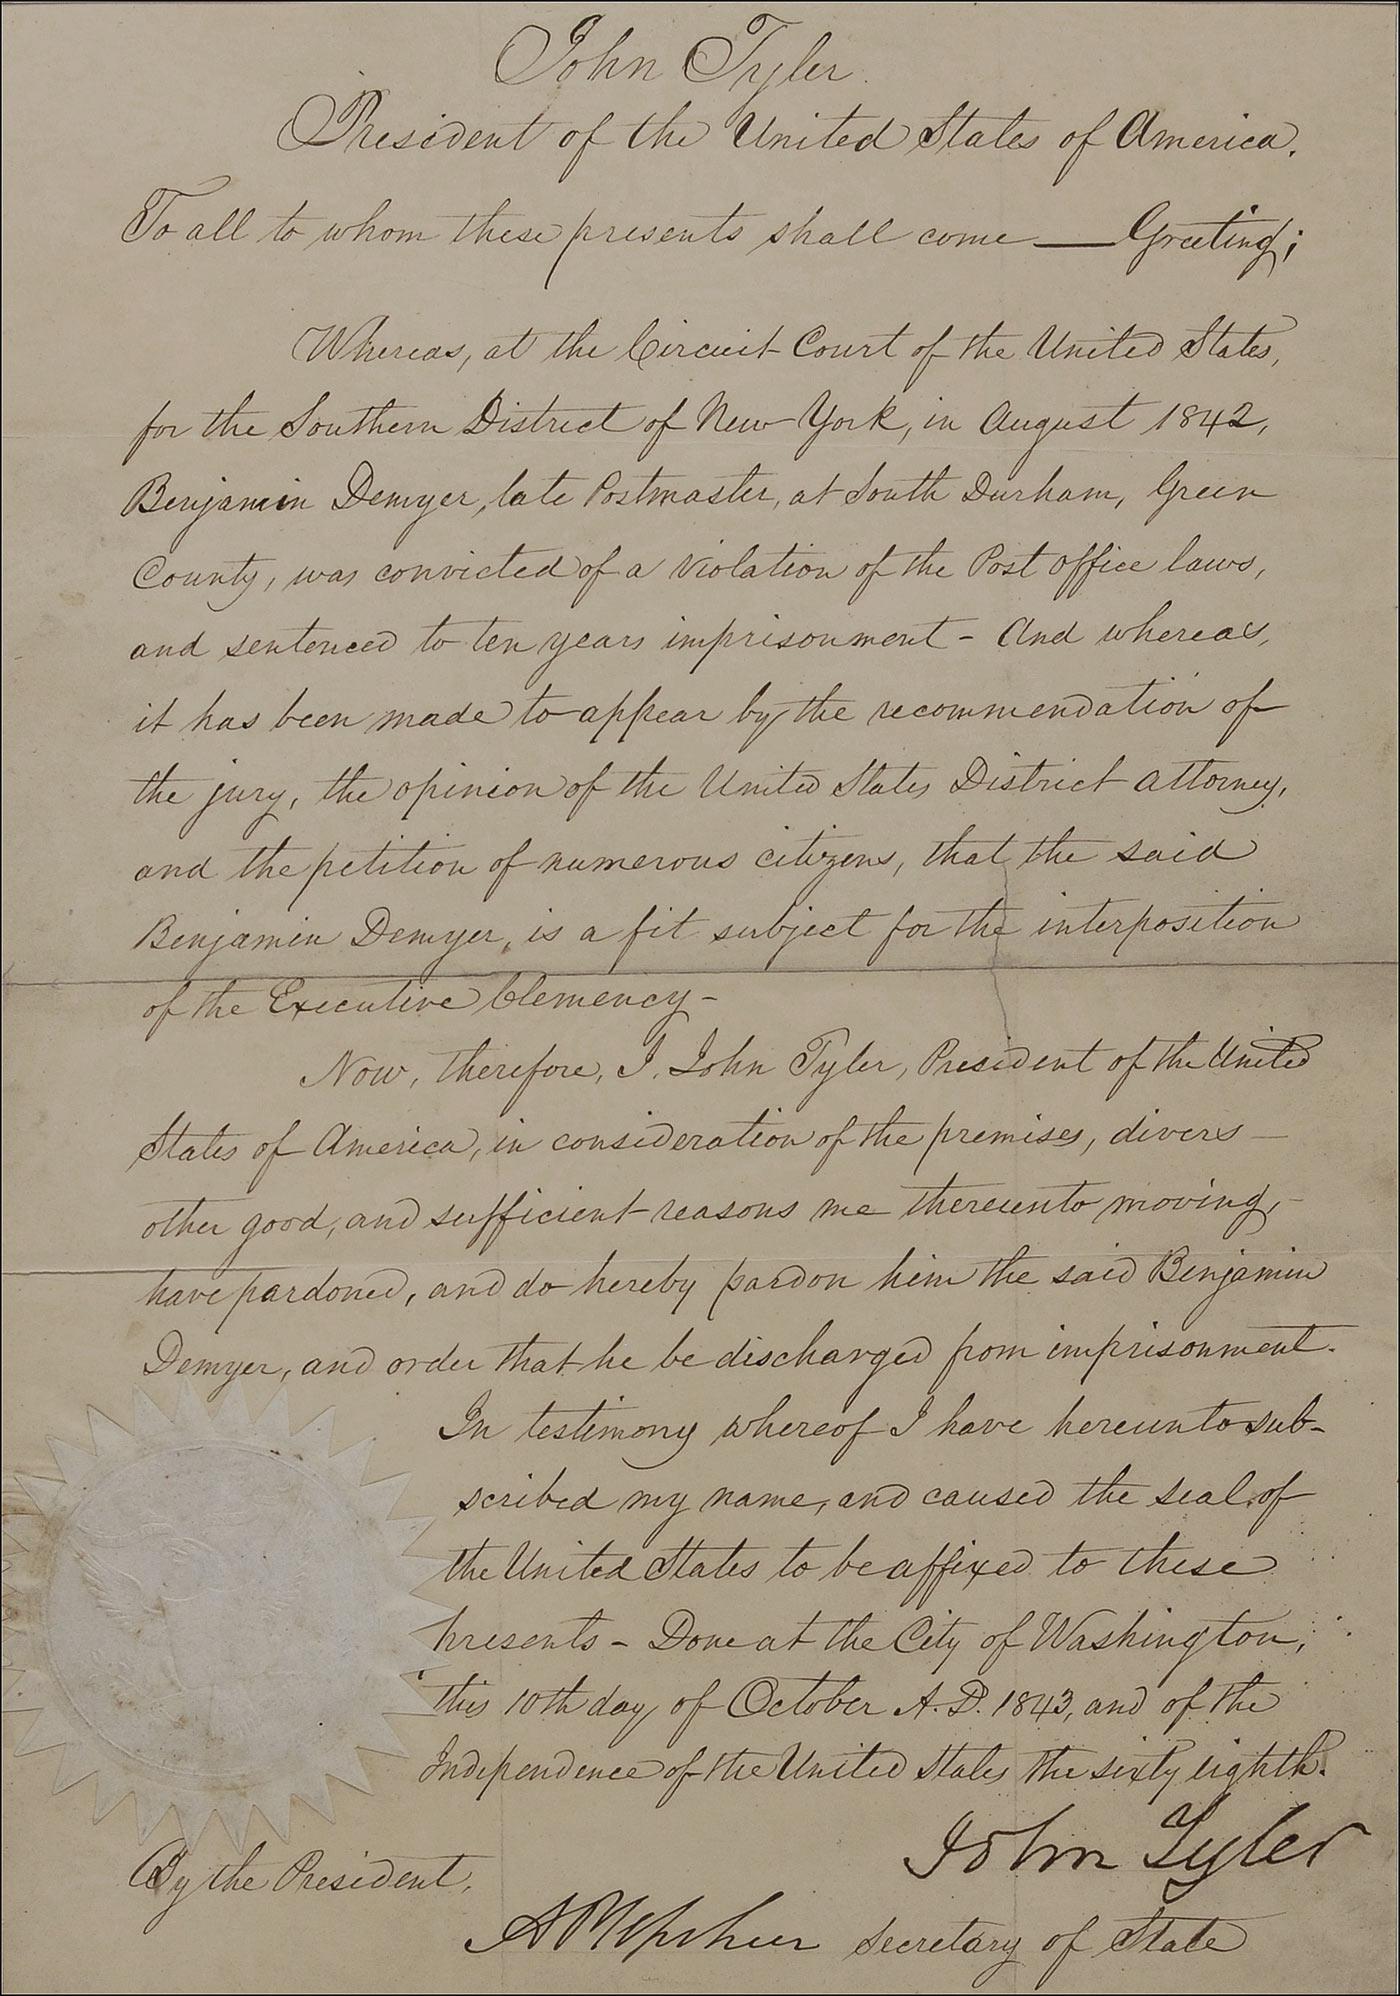 John Tyler.
President of the United States of America.
To all to whom these presents shall come — Greeting;
Whereas, at the Circuit Court of the United States,
for the Southern District of New York, in August 1842,
Benjamin Demyer, late Postmaster, at South Durham, Green
County, was convicted of a violation of the Post office laws,
and sentenced to ten years imprisonment - And whereas,
it has been made to appear by the recommendation of
the jury, the opinion of the United States District attorney,
and the petition of numerous citizens, that the said
Benjamin Demyer, is a fit subject for the interposition
of the Executive Clemency -
Now, therefore, I, John Tyler, President of the United
States of America, in consideration of the premises, divers —
other good, and sufficient reasons me thereunto moving, -
have pardoned, and do hereby pardon him the said Benjamin
Demyer, and order that he be discharged from imprisonment.
In testimony whereof I have hereunto sub-
scribed my name, and caused the seal of
the United States to be affixed to these
presents - Done at the City of Washington,
this 10th day of October A.D. 1843, and of the
Independence of the United States the sixty eighth.
John Tyler
By the President,
A P Upshur Secretary of State